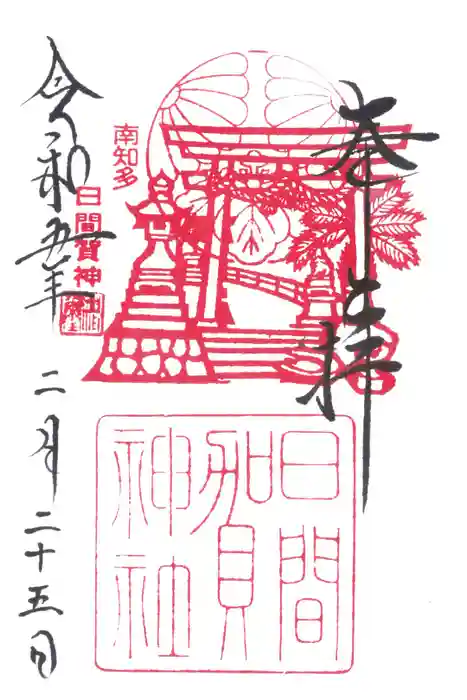 奉拝
南知多
日間賀神社
日間賀神社
令和五年
二月二十五日